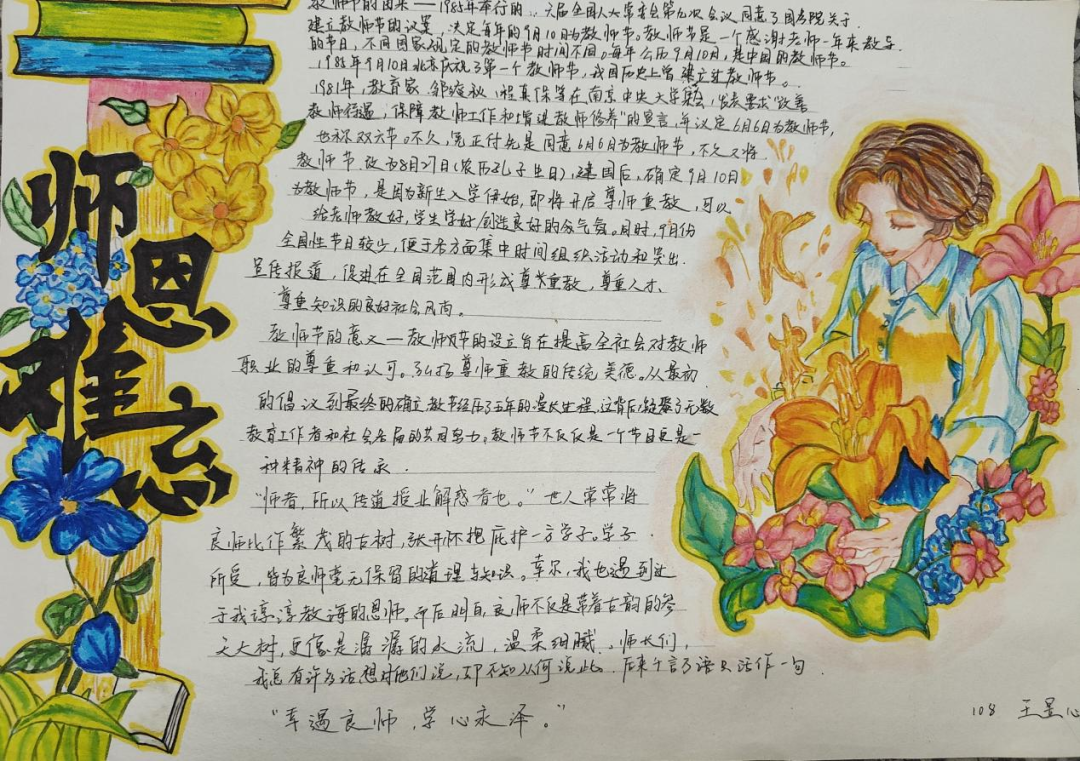 师恩难忘
教师节的由来——1985年奉行的，六届全国人大常委会第九次会议同意了国务院关于
建立教师节的议案，决定每年的9月10日为教师节。教师节是一个感谢老师一年来教导
的节日，不同国家规定的教师节时间不同。每年公历9月10日，是中国的教师节。
1985年9月10日北京庆祝了第一个教师节，我国历史上曾建立过教师节。
1931年，教育家 邰爽秋、程其保等在南京中央大学集会，发表要求"改善
教师待遇，保障教师工作和增进教师修养"的宣言，并议定6月6日为教师节，
也称双六节。不久，国民政府先是同意6月6日为教师节，不久又将
教师节改为8月27日（农历孔子生日），建国后，确定9月10日
为教师节，是因为新生入学伊始，即将开启尊师重教，可以
给老师教好，学生学好创造良好的气氛。同时，9月份
全国性节日较少，便于各方面集中时间组织活动和突出
宣传报道，促进在全国范围内形成尊师重教，尊重人才、
尊重知识的良好社会风尚。
教师节的意义—教师节的设立旨在提高全社会对教师
职业的尊重和认可。弘扬尊师重教的传统美德。从最初
的倡议到最终的确立教节经历了五年的漫长过程，这背后凝聚了无数
教育工作者和社会各届的共同努力。教师节不仅仅是一个节日更是一
种精神的传承.
"师者，所以传道授业解惑者也。"世人常常将
良师比作繁茂的古树，张开怀抱庇护一方学子。学子
所受，皆为良师毫无保留的道理与知识。幸尔，我也遇到过
于我谆谆教海的恩师。而后明白良师不仅是带着古韵的参
天大树，更像是潺潺的水流，温柔细腻。师长们，
我总有许多话想对他们说，却不知从何说起、后来千言万语只活作一句
"幸遇良师，学心永泽。"
108 王星心